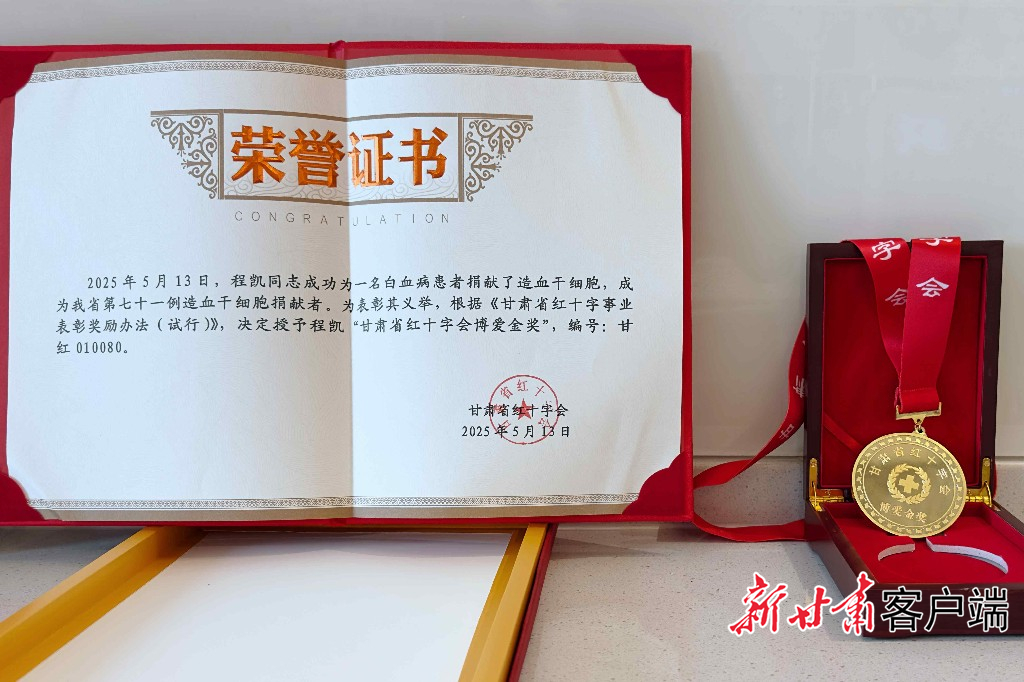 荣誉证书
CONGRATULATION
2025年5月13日，程凯同志成功为一名白血病患者捐献了造血干细胞，成
为我省第七十一例造血干细胞捐献者。为表彰其义举，根据《甘肃省红十字事业
表彰奖励办法（试行）》，决定授予程凯“甘肃省红十字会博爱金奖”，编号：甘
红010080。
甘肃省红十字会
2025年5月13日
字会
会
甘肃省红十字会
博爱金奖
新甘肃客户端